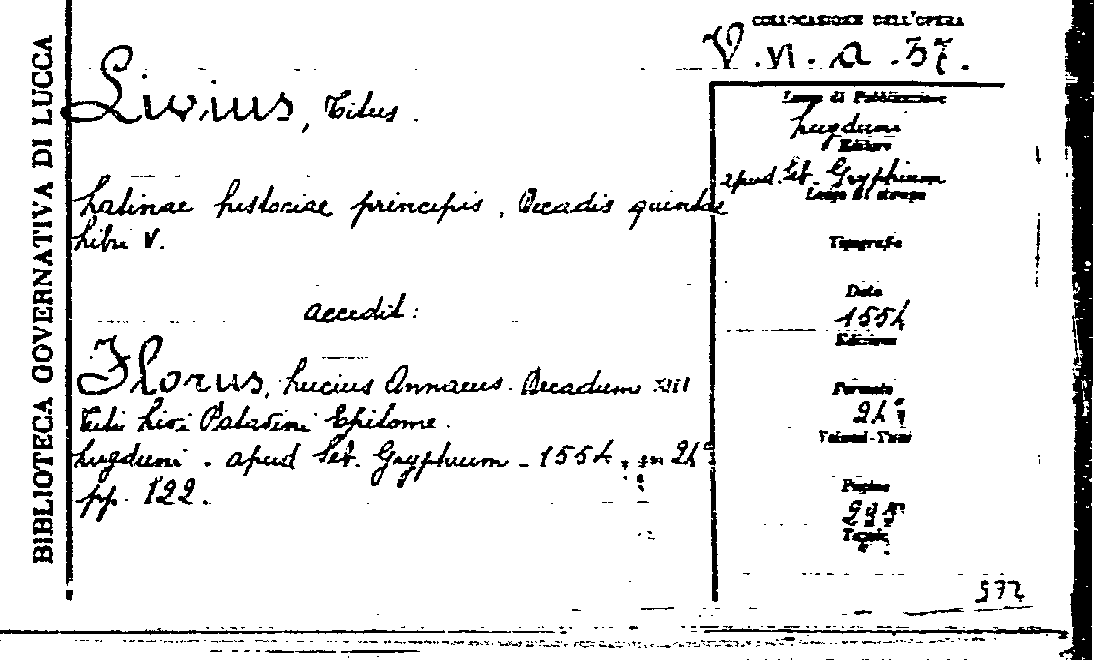 BIBLIOTECA GOVERNATIVA DI LUCCA
COLLOCAZIONE DELL'OPERA
V.n.a.37.
Livius, Titus.
Latinae historiae principis, Decadis quintae
Libri V.
accedit:
Florus, Lucius Annaeus. Decadum XIII
Titi Livi Patavini Epitome.
Lugduni. apud Seb. Gryphium - 1554, in 24°
pp. 122.
Luogo di Pubblicazione
Lugduni
Editore
apud. Seb. Gryphium
Luogo di stampa
Tipografo
Data
1554
Edizione
Formato
24°
Volumi-Tomi
Pagine
Tavole
572